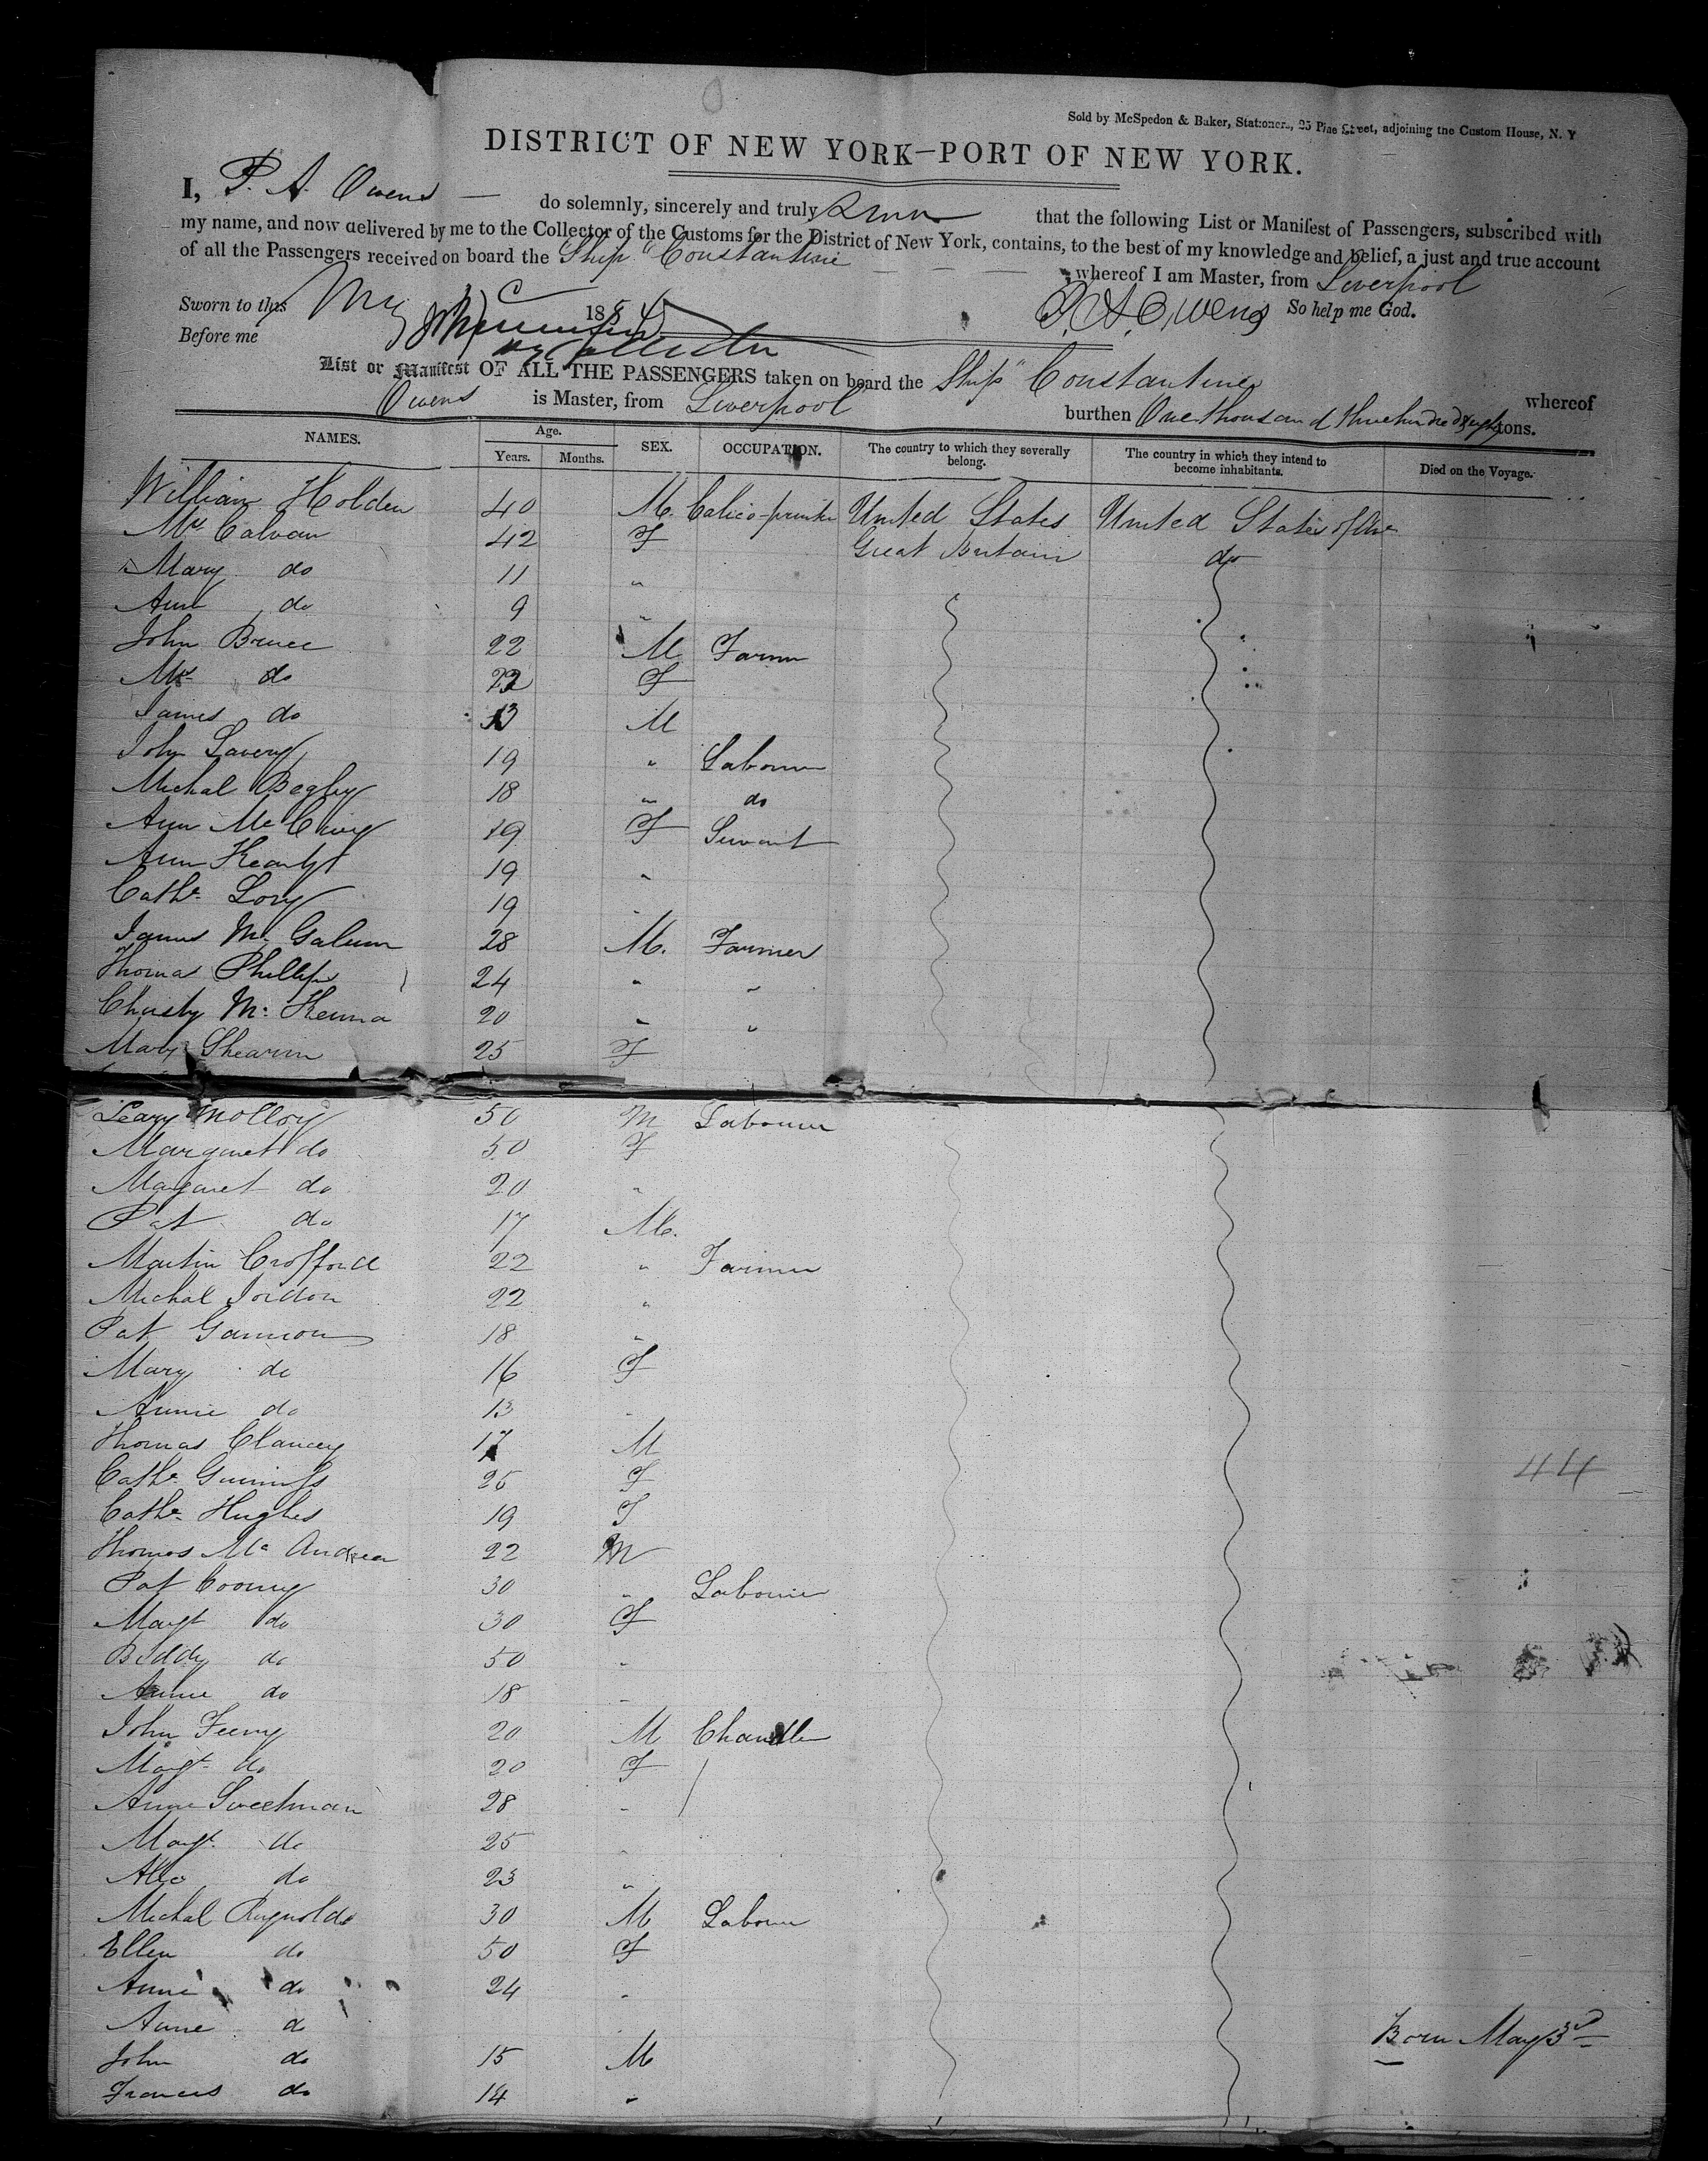 Sold by McSpedon & Baker, Stationers, 25 Pine Street, adjoining the Custom House, N. Y
DISTRICT OF NEW YORK—PORT OF NEW YORK.
I, P. A. Owens do solemnly, sincerely and truly that the following List or Manifest of Passengers, subscribed with
my name, and now delivered by me to the Collector of the Customs for the District of New York, contains, to the best of my knowledge and belief, a just and true account
of all the Passengers received on board the Ship "Constantine whereof I am Master, from Liverpool
Sworn to this 1854 P. A. Owens So help me God.
Before me
List or Manifest OF ALL THE PASSENGERS taken on board the Ship "Constantine whereof
Owens is Master, from Liverpool burthen One thousand three hundred & eighty tons.
NAMES. Age. SEX. OCCUPATION. The country to which they severally belong. The country in which they intend to become inhabitants. Died on the Voyage.
Years. Months.
William Holden 40 M. Calico-printer United States United States of Ame
Mrs Calvan 42 F Great Britain do
Mary do 11 "
Ann do 9 "
John Bruce 22 M Farmer
Mrs do 22 F
James do 13 M
John Lavery 19 " Labourer
Michal Begley 18 " do
Ann 19 F Servant
Ann 19 "
Cathe Lory 19 "
James Mc 28 M. Farmer
Thomas Phillips 24 " "
Christy Mc Kenna 20 " "
Mary Shearin 25 F
Leary Molloy 50 M Labourer
Margaret do 50 F
Margaret do 20 "
Pat do 17 M.
Martin Crofford 22 " Farmer
Michal Jordon 22 "
Pat Gannon 18 "
Mary do 16 F
Annie do 13 "
Thomas Clancey 17 M
44
Cathe Gunnings 25 F
Cathe Hughes 19 F
Thomas Mc Andrew 22 M
Pat Coony 30 " Labourer
Margt do 30 F
Biddy do 50 "
Annie do 18 "
John Feeny 20 M Chandler
Margt do 20 F
Anne Sweetman 28 "
Margt do 25
do 23 "
Michal Reynolds 30 M Labourer
Ellen do 50 F
Anne do 24 "
Anne do Born May 3d
John do 15 M
Frances do 14 "